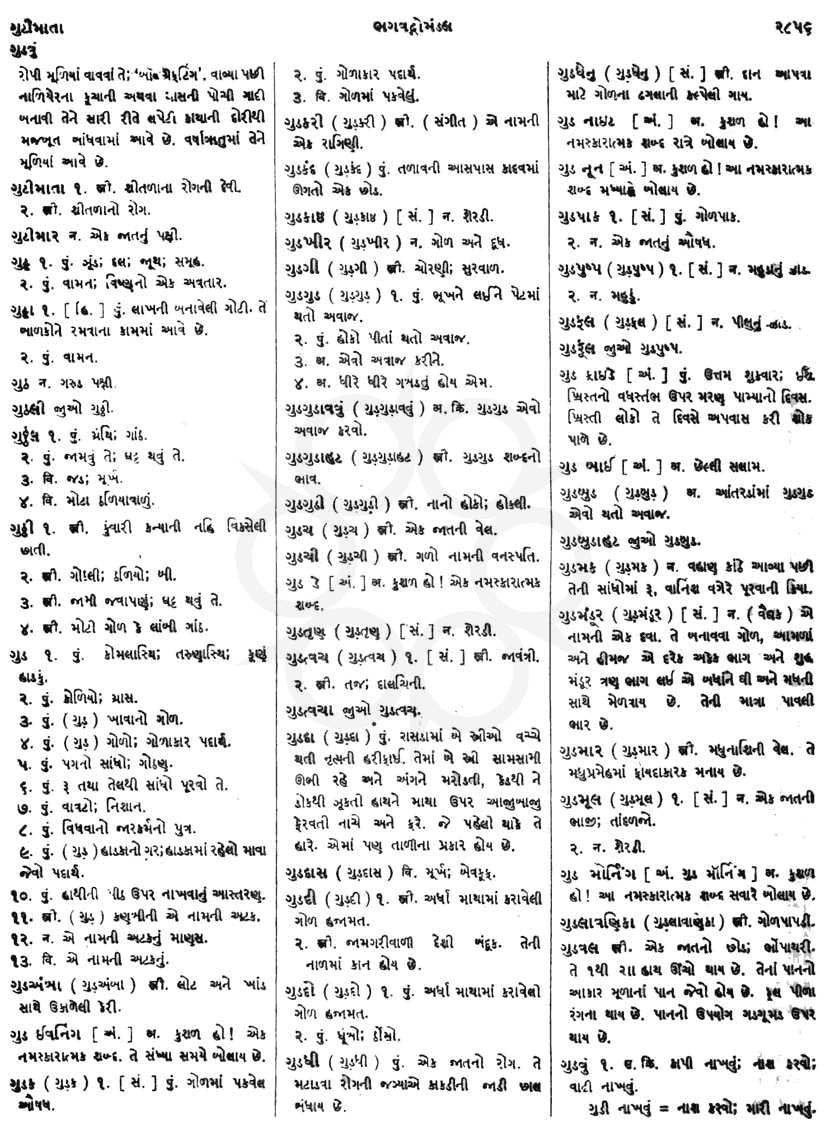 ગુટીમાતા
ભગવદ્ગોમંડલ
૨૮૫૬
ગુડવું
રોપી મૂળિયાં વાવવાં તે; ‘બૉલ પ્લૅન્ટિંગ’. વાવ્યા પછી
નાળિયેરના કૂચાની અથવા ઘાસની પોચી ગાદી
બનાવી તેને સારી રીતે લપેટી કાથાની દોરીથી
મજબૂત બાંધવામાં આવે છે. વર્ષાઋતુમાં તેને
મૂળિયાં આવે છે.
ગુટીમાતા ૧. સ્ત્રી. શીતળાના રોગની દેવી.
૨. સ્ત્રી. શીતળાનો રોગ.
ગુટીમાર ન. એક જાતનું પક્ષી.
ગુટ્ટ ૧. પું. ઝૂંડ; દલ; જૂથ; સમૂહ.
૨. પું. વામન; વિષ્ણુનો એક અવતાર.
ગુટ્ટા ૧. [ હિ. ] પું. લાખની બનાવેલી ગોટી. તે
બાળકોને રમવાના કામમાં આવે છે.
૨. પું. વામન.
ગુઠ ન. ગરુડ પક્ષી.
ગુઠલી જુઓ ગુઠ્ઠી.
ગુઠ્ઠલ ૧. પું. ગ્રંથિ; ગાંઠ.
૨. પું. જામવું તે; ઘટ્ટ થવું તે.
૩. વિ. જડ; મૂર્ખ.
૪. વિ. મોટા ઠળિયાવાળું.
ગુઠ્ઠી ૧. સ્ત્રી. કુંવારી કન્યાની નહિ વિકસેલી
છાતી.
૨. સ્ત્રી. ગોટલી; ઠળિયો; બી.
૩. સ્ત્રી. જામી જવાપણું; ઘટ્ટ થવું તે.
૪. સ્ત્રી. મોટી ગોળ કે લાંબી ગાંઠ.
ગુડ ૧. પું. કોમલાસ્થિ; તરુણાસ્થિ; કૂણું
હાડકું.
૨. પું. કોળિયો; ગ્રાસ.
૩. પું. (ગુડ઼) ખાવાનો ગોળ.
૪. પું. (ગુડ઼) ગોળો; ગોળાકાર પદાર્થ.
૫. પું. પગનો સાંધો; ગોઠણ.
૬. પું. રૂ તથા તેલથી સાંધો પૂરવો તે.
૭. પું. વાવટો; નિશાન.
૮. પું. વિધવાનો જારકર્મનો પુત્ર.
૯. પું. (ગુડ઼) હાડકાનો ગર; હાડકામાં રહેલો માવા
જેવો પદાર્થ.
૧૦. પું. હાથીની પીઠ ઉપર નાખવાનું આસ્તરણ.
૧૧. સ્ત્રી. (ગુડ઼) કણબીની એ નામની અટક.
૧૨. ન. એ નામની અટકનું માણસ.
૧૩. વિ. એ નામની અટકનું.
ગુડઅંબા (ગુડ઼અંબા) સ્ત્રી. લોટ અને ખાંડ
સાથે ઉકાળેલી કેરી.
ગુડ ઈવનિંગ [ અં. ] અ. કુશળ હો! એક
નમસ્કારાત્મક શબ્દ. તે સંધ્યા સમયે બોલાય છે.
ગુડક (ગુડ઼ક) ૧. [ સં. ] પું. ગોળમાં પકવેલ
ઔષધ.
૨. પું. ગોળાકાર પદાર્થ.
૩. વિ. ગોળમાં પકવેલું.
ગુડકરી (ગુડ઼કરી) સ્ત્રી. (સંગીત) એ નામની
એક રાગિણી.
ગુડકંદ (ગુડ઼કંદ) પું. તળાવની આસપાસ કાદવમાં
ઊગતો એક છોડ.
ગુડકાષ્ઠ (ગુડ઼કાષ્ઠ) [ સં. ] ન. શેરડી.
ગુડખીર (ગુડ઼ખીર) ન. ગોળ અને દૂધ.
ગુડગી (ગુડ઼ગી) સ્ત્રી. ચોરણી; સુરવાળ.
ગુડગુડ (ગુડ઼ગુડ઼) ૧. પું. ભૂખને લઈને પેટમાં
થતો અવાજ.
૨. પું. હોકો પીતાં થતો અવાજ.
૩. અ. એવો અવાજ કરીને.
૪. અ. ધીરે ધીરે ગબડતું હોય એમ.
ગુડગુડાવવું (ગુડ઼ગુડ઼ાવવું) અ. ક્રિ. ગુડગુડ એવો
અવાજ કરવો.
ગુડગુડાહટ (ગુડ઼ગુડ઼ાહટ) સ્ત્રી. ગુડગુડ શબ્દનો
ભાવ.
ગુડગુડી (ગુડ઼ગુડ઼ી) સ્ત્રી. નાનો હોકો; હોકલી.
ગુડચ (ગુડ઼ચ) સ્ત્રી. એક જાતની વેલ.
ગુડચી (ગુડ઼ચી) સ્ત્રી. ગળો નામની વનસ્પતિ.
ગુડ ડે [ અં. ] અ. કુશળ હો! એક નમસ્કારાત્મક
શબ્દ.
ગુડતૃણ (ગુડ઼તૃણ) [ સં. ] ન. શેરડી.
ગુડત્વચ (ગુડ઼ત્વચ) ૧. [ સં. ] સ્ત્રી. જાવંત્રી.
૨. સ્ત્રી. તજ; દાલચિની.
ગુડત્વચા જુઓ ગુડત્વચ.
ગુડદા (ગુડ઼દા) પું. રાસડામાં બે સ્ત્રીઓ વચ્ચે
થતી નૃત્યની હરીફાઈ. તેમાં બે સ્ત્રી સામસામી
ઊભી રહે અને અંગને મરોડતી, કેડથી ને
ડોકથી ઝૂકતી હાથને માથા ઉપર આજુબાજુ
ફેરવતી નાચે અને ફરે. જે પહેલો થાકે તે
હારે. એમાં પણ તાળીના પ્રકાર હોય છે.
ગુડદાસ (ગુડ઼દાસ) વિ. મૂર્ખ; બેવકૂફ.
ગુડદી (ગુડ઼દી) ૧. સ્ત્રી. અર્ધા માથામાં કરાવેલી
ગોળ હજામત.
૨. સ્ત્રી. જામગરીવાળી દેશી બંદૂક. તેની
નાળમાં કાન હોય છે.
ગુડદો (ગુડ઼દો) ૧. પું. અર્ધા માથામાં કરાવેલો
ગોળ હજામત.
૨. પું. ધૂંબો; ઠોંસો.
ગુડધી (ગુડ઼ધી) પું. એક જાતનો રોગ. તે
મટાડવા રોગની જગ્યાએ કાકડીની જાડી છાલ
બંધાય છે.
ગુડધેનુ (ગુડ઼ધેનુ) [ સં. ] સ્ત્રી. દાન આપવા
માટે ગોળના ઢગલાની કલ્પેલી ગાય.
ગુડ નાઇટ [ અં. ] અ. કુશળ હો! આ
નમસ્કારાત્મક શબ્દ રાત્રે બોલાય છે.
ગુડ નૂન [ અં. ] અ. કુશળ હો! આ નમસ્કારાત્મક
શબ્દ મધ્યાહ્ને બોલાય છે.
ગુડપાક ૧. [ સં. ] પું. ગોળપાક.
૨. ન. એક જાતનું ઔષધ.
ગુડપુષ્પ (ગુડ઼પુષ્પ) ૧. [ સં. ] ન. મહુડાનું ઝાડ.
૨. ન. મહુડું.
ગુડફલ (ગુડ઼ફલ) [ સં. ] ન. પીલુનું ઝાડ.
ગુડફૂલ જુઓ ગુડપુષ્પ.
ગુડ ફ્રાઈડે [ અં. ] પું. ઉત્તમ શુક્રવાર; ઈશુ
ખ્રિસ્તનો વધસ્તંભ ઉપર મરણ પામ્યાનો દિવસ.
ખ્રિસ્તી લોકો તે દિવસે અપવાસ કરી શોક
પાળે છે.
ગુડ બાઈ [ અં. ] અ. છેલ્લી સલામ.
ગુડબુડ (ગુડ઼બુડ઼) અ. આંતરડાંમાં ગુડગુડ
એવો થતો અવાજ.
ગુડબુડાહટ જુઓ ગુડબુડ.
ગુડમક (ગુડ઼મક) ન. વહાણ કાંઠે આવ્યા પછી
તેની સાંધોમાં રૂ, વાર્નિશ વગેરે પૂરવાની ક્રિયા.
ગુડમંડૂર (ગુડ઼મંડૂર) [ સં. ] ન. (વૈદ્યક) એ
નામની એક દવા. તે બનાવવા ગોળ, આમળાં
અને હીમજ એ દરેક અકેક ભાગ અને શુદ્ધ
મંડૂર ત્રણ ભાગ લઈ એ બધાંને ઘી અને મધની
સાથે મેળવાય છે. તેની માત્રા પાવલી
ભાર છે.
ગુડમાર (ગુડ઼માર) સ્ત્રી. મધુનાશિની વેલ. તે
મધુપ્રમેહમાં ફાયદાકારક મનાય છે.
ગુડમૂલ (ગુડ઼મૂલ) ૧. [ સં. ] ન. એક જાતની
ભાજી; તાંદળજો.
૨. ન. શેરડી.
ગુડ મોર્નિંગ [ અં. ગુડ મૉર્નિંગ ] અ. કુશળ
હો! આ નમસ્કારાત્મક શબ્દ સવારે બોલાય છે.
ગુડલાવણિકા (ગુડ઼લાવણિકા) સ્ત્રી. ગોળપાપડી.
ગુડવલ સ્ત્રી. એક જાતનો છોડ; ભોંપાથરી.
તે ૧થી ૨ાા હાથ ઊંચો થાય છે. તેનાં પાનનો
આકાર મૂળાનાં પાન જેવો હોય છે. ફૂલ પીળા
રંગના થાય છે. પાનનો ઉપયોગ ગડગૂમડ ઉપર
થાય છે.
ગુડવું ૧. સ. ક્રિ. કાપી નાખવું; નાશ કરવો;
વાઢી નાખવું.
ગુડી નાખવું = નાશ કરવો; મારી નાખવું.